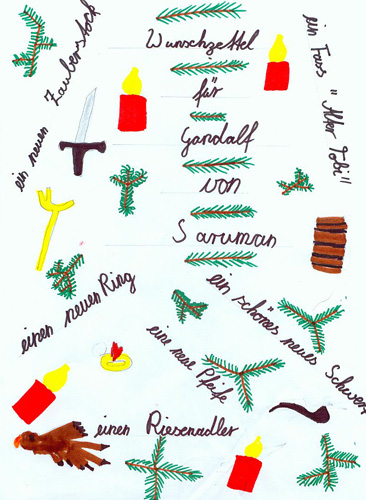 Wunschzettel
für
Gandalf
von
Saruman
ein neuen Zauberstock
ein Fass "Alter Tobi"
einen neuen Ring
ein schönes neues Schwer
eine neue Pfeife
einen Riesenadler